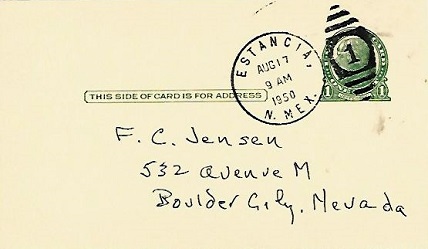 ESTANCIA,
AUG 17
9 AM
1950
N. MEX.
1
1 1
THIS SIDE OF CARD IS FOR ADDRESS
F. C. Jensen
532 avenue M
Boulder City, Nevada